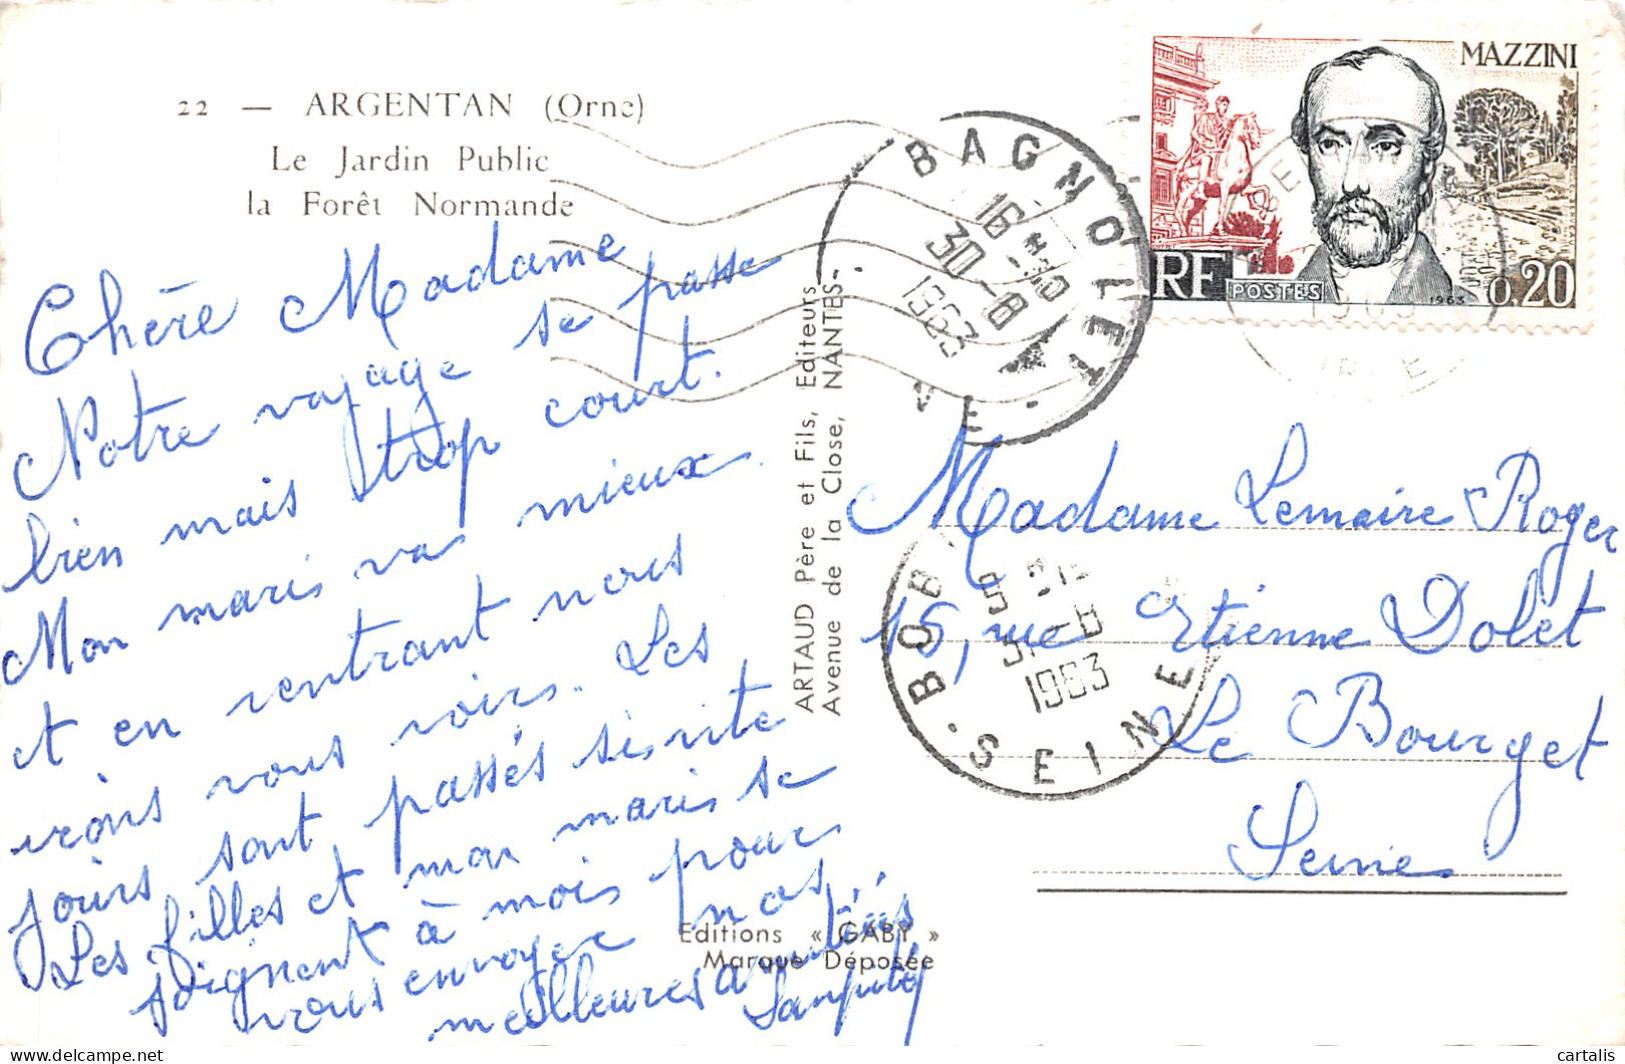 22 — ARGENTAN (Orne)
Le Jardin Public
la Forêt Normande
Chère Madame
Notre voyage se passe
bien mais trop court.
Mon maris va mieux
et en rentrant nous
irons vous voirs. Les
jours sont passés si vite
Les filles et mon maris se
joignent à mois pour
vous envoyer nos
meilleures amitiés
ARTAUD Père et Fils, Editeurs
Avenue de la Close, NANTES
Editions « GABY »
Marque Déposée
MAZZINI
RF POSTES 1963 0,20
BAGNOLET
16 H 30
30-8
1963
BOB
SEINE
1963
Madame Lemaire Roger
15, rue Etienne Dolet
Le Bourget
Seine
cartalis
delcampe.net